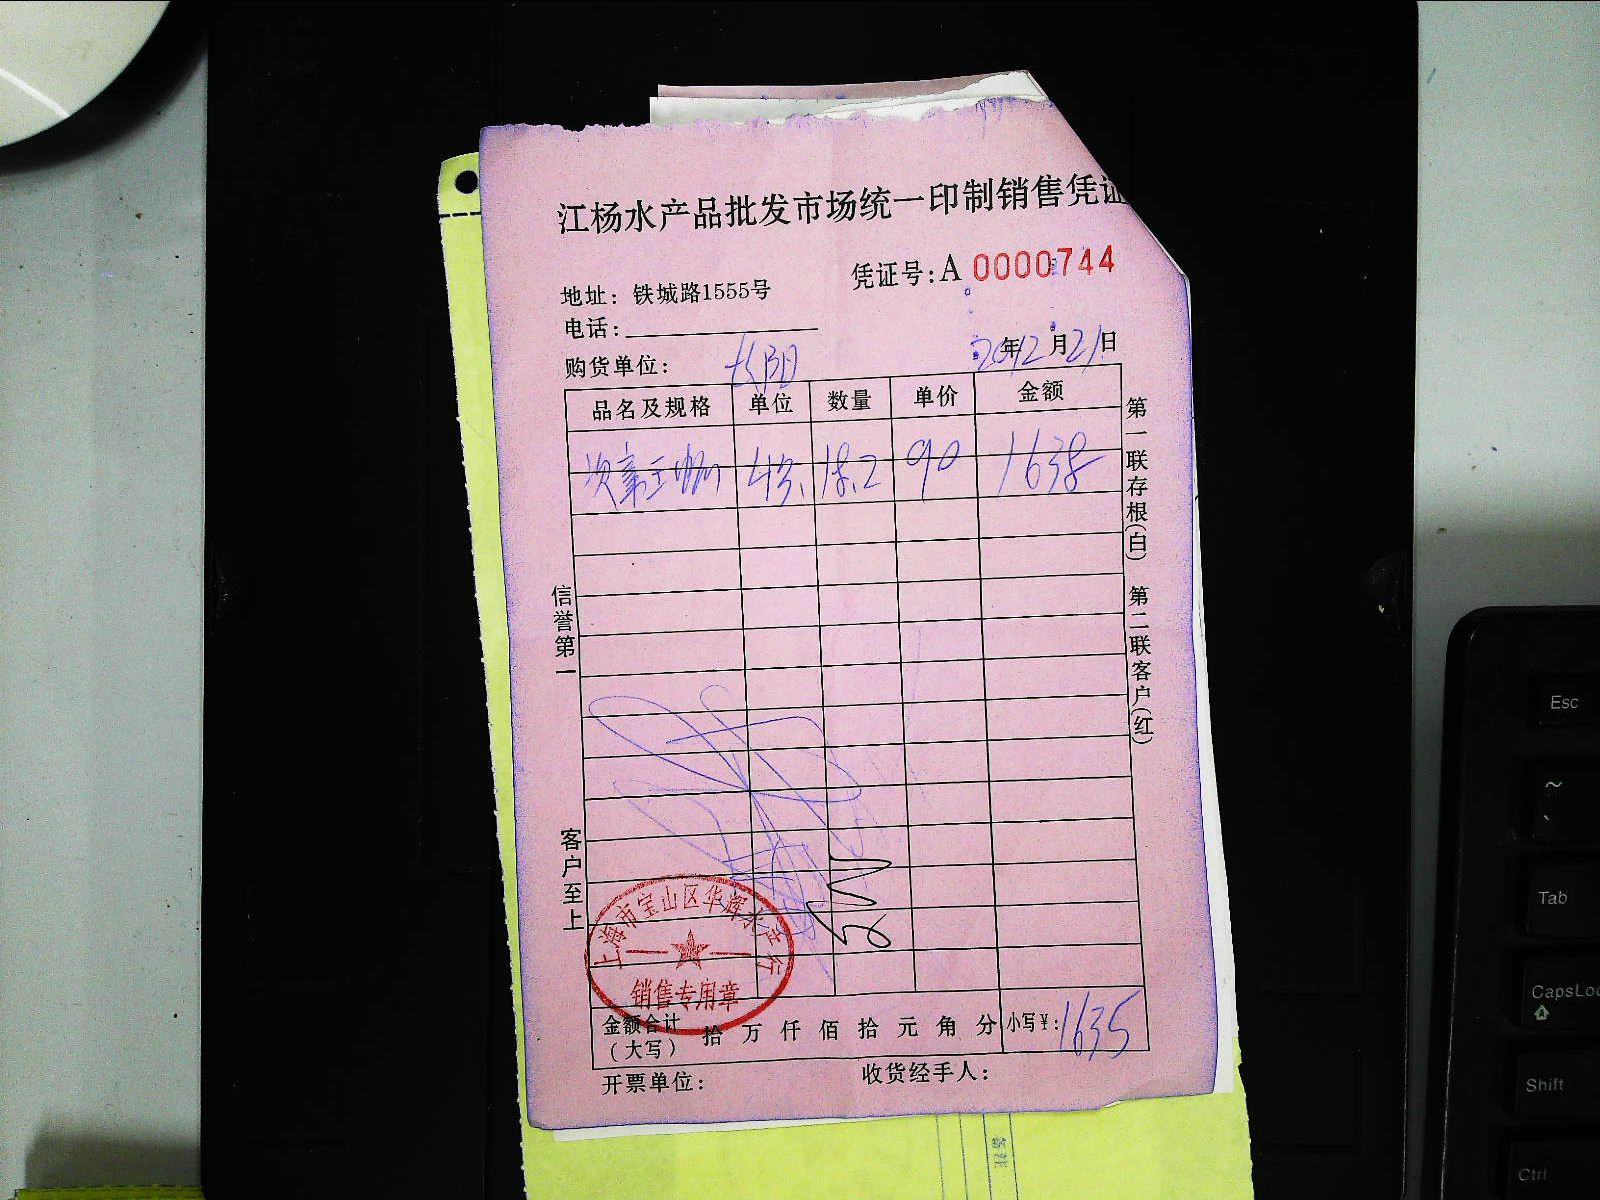 江杨水产品批发市场统一印制销售凭证
凭证号:A 0000744
地址: 铁城路1555号
电话:
20年12月21日
购货单位: 长阳
品名及规格 单位 数量 单价 金额
18.2 90 1638
第一联存根(白) 第二联客户(红)
信誉第一
客户至上
上海市宝山区华辉水产行
销售专用章
金额合计(大写) 拾 万 仟 佰 拾 元 角 分 小写¥: 1635
开票单位: 收货经手人:
备注
Esc
~
Tab
CapsLoc
Shift
Ctrl